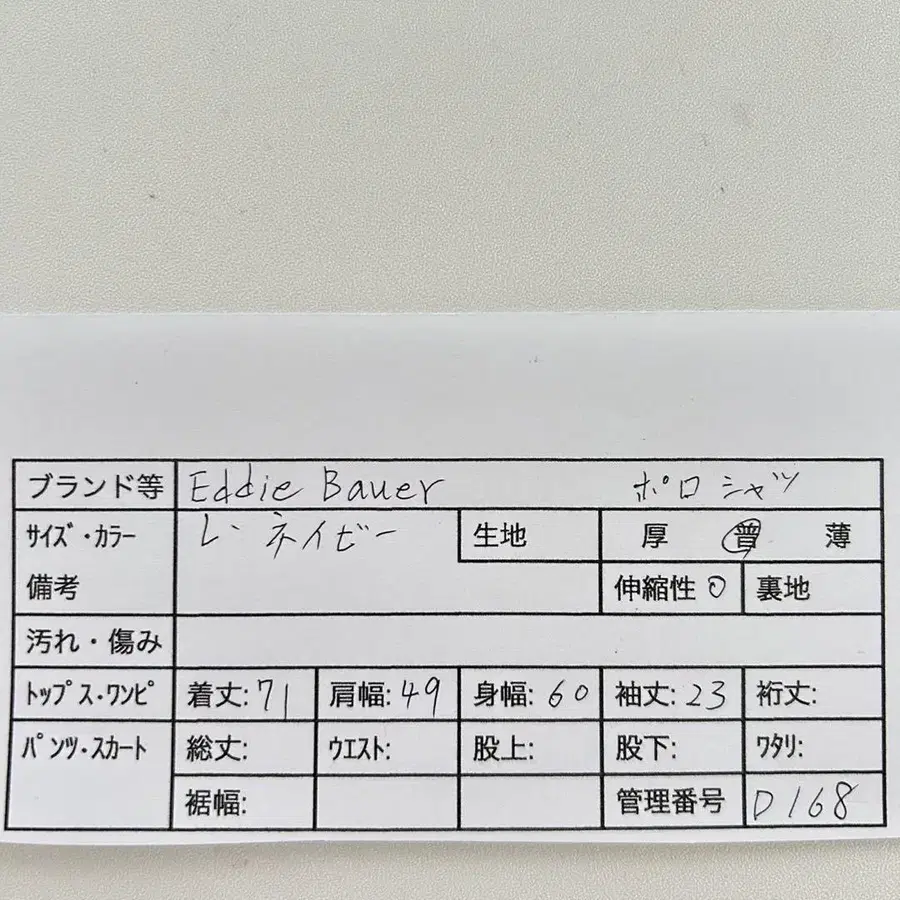 ブランド等 Eddie Bauer ポロシャツ
サイズ・カラー L・ネイビー 生地 厚 普 薄
備考 伸縮性 〇 裏地
汚れ・傷み
トップス・ワンピ 着丈:71 肩幅:49 身幅:60 袖丈:23 裄丈:
パンツ・スカート 総丈: ウエスト: 股上: 股下: ワタリ:
裾幅: 管理番号 D168